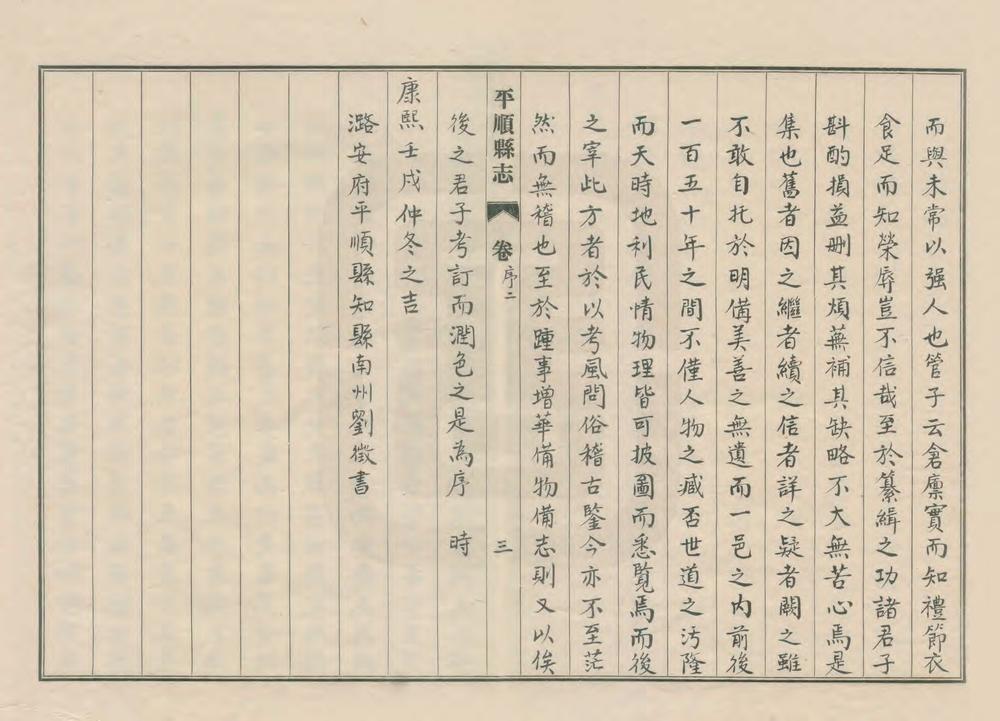 而與未常以强人也管子云倉廩實而知禮節衣
食足而知榮辱豈不信哉至於纂緝之功諸君子
斟酌損益删其煩蕪補其缺略不大無苦心焉是
集也舊者因之繼者續之信者詳之疑者闕之雖
不敢自托於明備美善之無遺而一邑之内前後
一百五十年之間不僅人物之臧否世道之汚隆
而天時地利民情物理皆可披圖而悉覽焉而後
之宰此方者於以考風問俗稽古鑒今亦不至茫
然而無稽也至於踵事增華備物備志則又以俟
平順縣志 卷序二 三
後之君子考訂而潤色之是為序 時
康熙壬戌仲冬之吉
潞安府平順縣知縣南州劉徵書